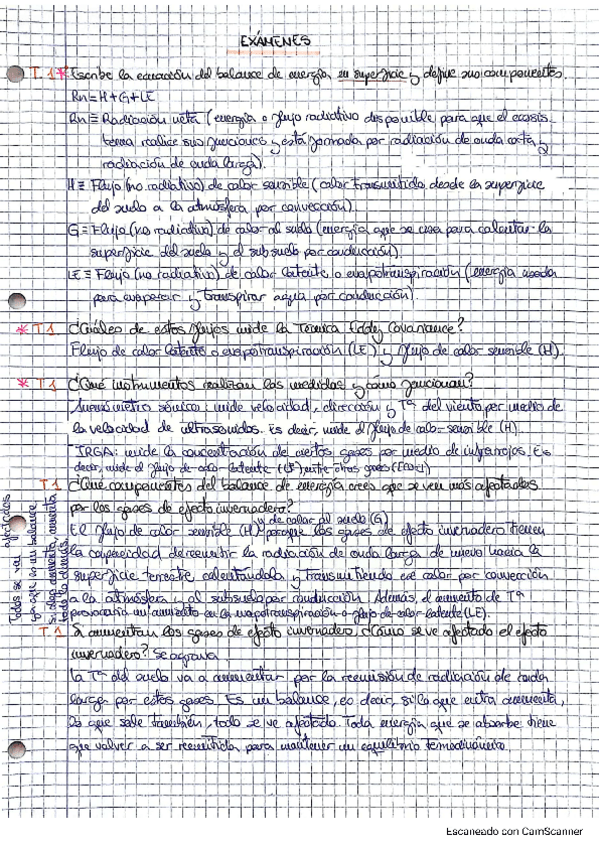 EXÁMENES
T.1 * Escribe la ecuación del balance de energía en superficie y define sus componentes.
Rn = H + G + LE
Rn ≡ Radiación neta (energía o flujo radiativo disponible para que el ecosis-
tema realice sus funciones y está formada por radiación de onda corta y
radiación de onda larga).
H ≡ Flujo (no radiativo) de calor sensible (calor transmitido desde la superficie
del suelo a la atmósfera por convección).
G ≡ Flujo (no radiativo) de calor al suelo (energía que se usa para calentar la
superficie del suelo y el subsuelo por conducción).
LE ≡ Flujo (no radiativo) de calor latente o evapotranspiración (energía usada
para evaporar y transpirar agua por conducción).
* T1 ¿Cuáles de estos flujos mide la Técnica Eddy Covariance?
Flujo de calor latente o evapotranspiración (LE) y flujo de calor sensible (H).
* T1 ¿Qué instrumentos realizan las medidas y cómo funcionan?
Anemómetro sónico: mide velocidad, dirección y Tª del viento por medio de
la velocidad de ultrasonidos. Es decir, mide el flujo de calor sensible (H).
IRGA: mide la concentración de ciertos gases por medio de infrarrojos. Es
decir, mide el flujo de calor latente (LE), entre otros gases (CO2)
T1 ¿Qué componentes del balance de energía crees que se ven más afectados
por los gases de efecto invernadero?
y de calor al suelo (G)
El flujo de calor sensible (H) porque los gases de efecto invernadero tienen
la capacidad de reemitir la radiación de onda larga de nuevo hacia la
superficie terrestre, calentándola y transmitiendo ese calor por convección
a la atmósfera y al subsuelo por conducción. Además, el aumento de Tª
provocaría un aumento en la evapotranspiración o flujo de calor latente (LE).
Todos se ven afectados
porque es un balance.
Si algo aumenta, aumenta
todo lo demás.
T1 Si aumentan los gases de efecto invernadero, ¿Cómo se ve afectado el efecto
invernadero? Se agrava
La Tª del suelo va a aumentar por la reemisión de radiación de onda
larga por estos gases. Es un balance, es decir, si lo que entra aumenta,
lo que sale también, todo se ve afectado. Toda energía que se absorbe tiene
que volver a ser reemitida para mantener un equilibrio termodinámico.
Escaneado con CamScanner